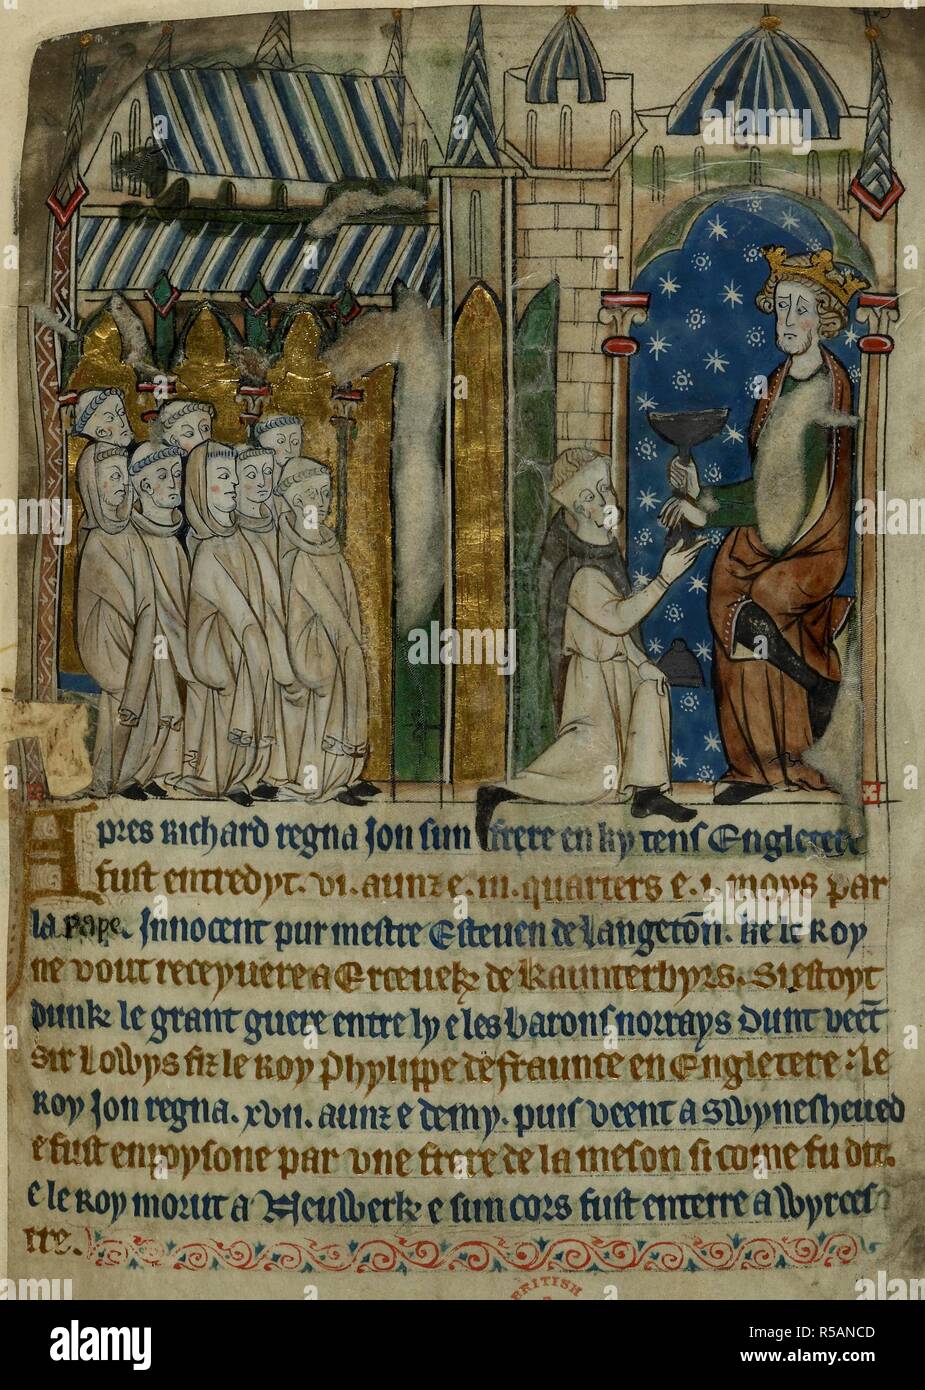 Apres Richard regna Jon sun frere en ky tens Engletere
fust entredyt. vi. aunz e. iii. quarters e. i. moys par
la Pape. Innocent pur mestre Esteuen de Langeton. ke le Roy
ne vout receyuere a Erceuek de Kaunterbyrs. Si estoyt
dunk le grant guere entre ly e les barons norrays dunt veent
Sir Lowys fiz le Roy Phylippe de fraunce en Engletere: le
Roy Jon regna. xvii. aunz e demy. puis veent a Swynesheued
e fust enpoysone par vne frere de la meson si come fu dit.
e le Roy morut a Neuwerk e sun cors fust enterre a Wyrces
tre.
BRITISH
alamy
Image ID: R5ANCD
www.alamy.com